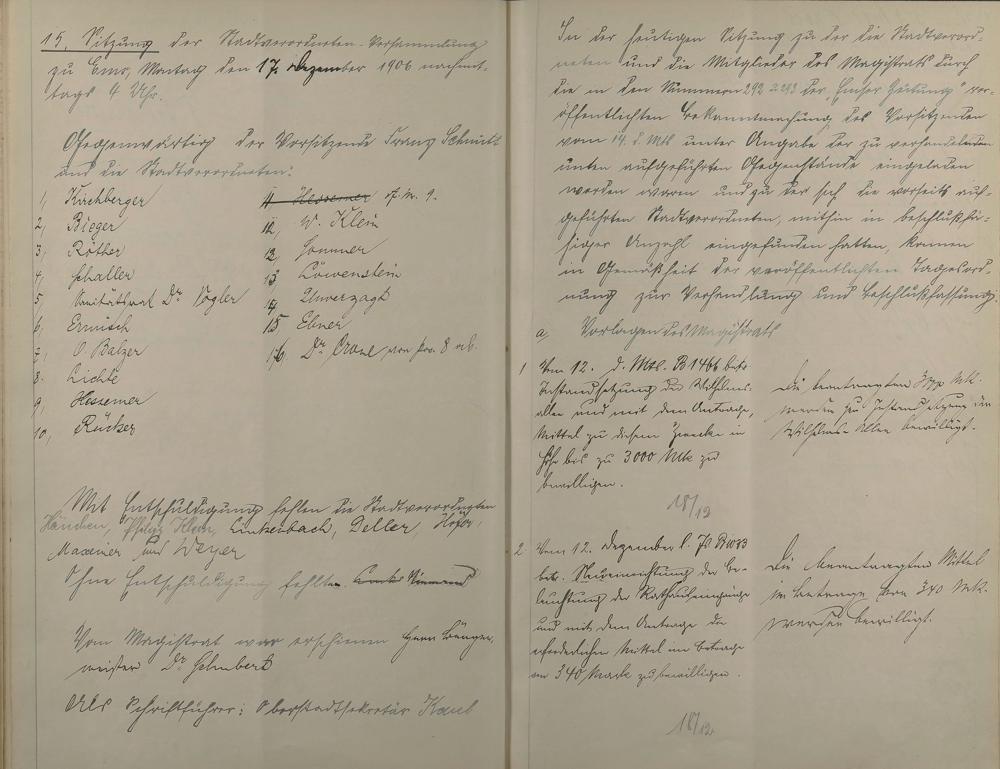 15. Sitzung der Stadtverordneten-Versammlung
zu Ems, Montag den 17. Dezember 1906 nachmit-
tags 4 Uhr.
Gegenwärtig der Vorsitzende Franz Schmitt
und die Stadtverordneten:
1, Kirchberger
2, Bieger
3, Röther
4, Schaller
5 Sanitätsrat Dr Vogler
6, Ermisch
7, O. Balzer
8. Lichte
9, Hessemer
10, Rücker
11 Hessemer
12, W. Klein
12, Sommer
13 Löwenstein
14 Unverzagt
15 Ebner
16 Dr. von No. 8 ab.
Mit Entschuldigung fehlen die Stadtverordneten
Häuchen, Philipp Klein, Linkenbach, Deller, Hofer,
Maxeiner und Weyer
Ohne Entschuldigung fehlten Niemand
Vom Magistrat war erschienen Herr Bürger-
meister Dr Schubert
Als Schriftführer: Oberstadtsekretär Kaul
In der heutigen Sitzung zu der die Stadtverord-
neten und die Mitglieder des Magistrats durch
die in den Nummern 292 & 293 der "Emser Zeitung" ver-
öffentlichten Bekanntmachung des Vorsitzenden
vom 14. d. Mts unter Angabe der zu verhandelnden
unten aufgeführten Gegenstände eingeladen
worden waren und zu der sich die vorseits auf-
geführten Stadtverordneten, mithin in beschlußfä-
higer Anzahl eingefunden hatten, kamen
in Gemäßheit der veröffentlichten Tagesord-
nung zur Verhandlung und Beschlußfassung:
a, Vorlagen des Magistrats
1 Vom 12. d. Mts. B 1466 betr.
Instandsetzung der Wilhelms-
allee und mit dem Antrage,
Mittel zu diesem Zwecke in
Höhe bis zu 3000 Mk zu
bewilligen.
Die beantragten 3000 Mk.
werden zur Instandsetzung der
Wilhelms-Allee bewilligt.
18/12
2 Vom 12. Dezember l. Js B 1033
betr. Neueinrichtung der Be-
leuchtung der Rathauseingänge
und mit dem Antrage die
erforderlichen Mittel im Betrage
von 340 Mark zu bewilligen.
Die beantragten Mittel
im Betrage von 340 Mk.
werden bewilligt.
18/12